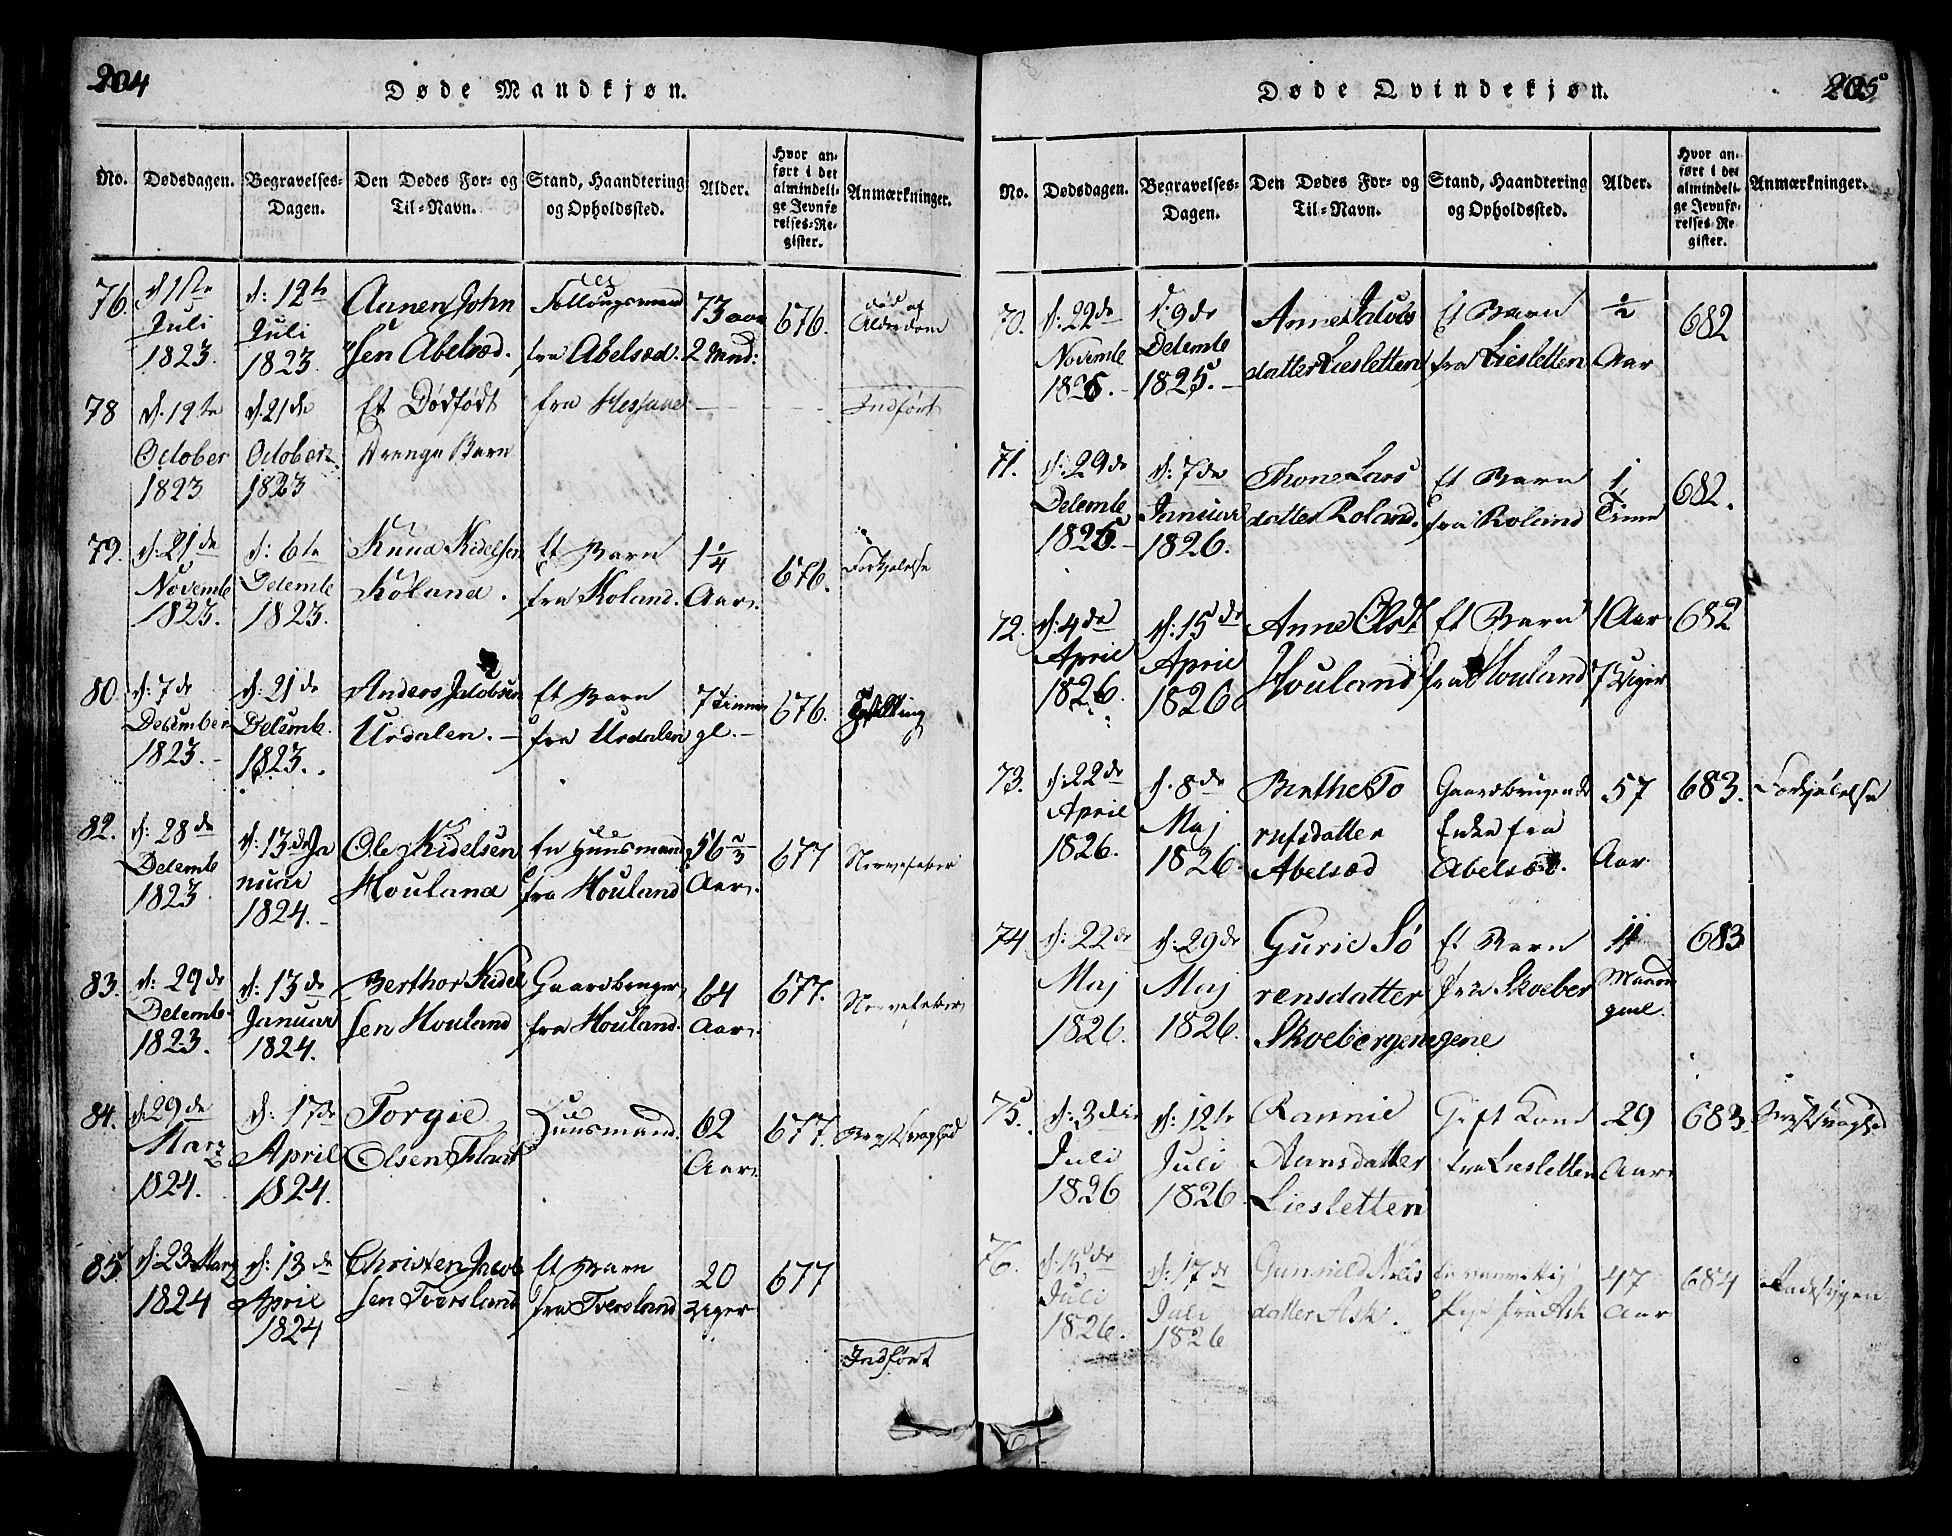 204
Døde Mandkjøn.
No. Dødsdagen. Begravelses-Dagen. Den Dødes For- og Til-Navn. Stand, Haandtering og Opholdssted. Alder. Hvor anført i det almindelige Jevnførelses-Register. Anmærkninger.
76. d 1ste d: 12te Aanen John 73 aar 676. død af
Juli Juli Alderdom
1823. 1823. sen Abelsæd. fra Abelsæd. 2 Mnd:
78 d. 19te d. 21de Et Dødfødt fra - - - Indført
October October Drenge Barn
1823 1823
79. d: 21de d: 6te Knud Kidelsen Et Barn 1¼ 676. Forkjølelse
Novembr Decembr Roland. fra Roland. Aar.
1823. 1823.
80 d: 7de d: 21de Anders Jacobsen Et Barn 7 Timer 676.
December Decembr. Urdalen. - fra Urdalen gl. -
1823. - 1823.
82. d: 28de d: 13de Ja Ole Kidelsen En Huusmand 56⅔ 677 Nervefeber
Decembr nuar Houland fra Houland Aar.
1823 1824. -
83. d: 29de d: 13de Berthor Kidel Gaardbruger 64 677. Nervefeber
Decembr. Januar sen Houland fra Houland. Aar.
1823. 1824.
84. d. 29de d: 17de Torgie Huusmand. 62 677. Brystsvaghed
Marz April Olsen Aar.
1824. 1824.
85. d. 23 Marz d: 13de Christen Jacob Et Barn 20 677
1824 April sen Tversland fra Tversland Uger
1824
Indført
205
Døde Qvindekjøn.
No. Dødsdagen. Begravelses-Dagen. Den Dødes For- og Til-Navn. Stand, Haandtering og Opholdssted. Alder. Hvor anført i det almindelige Jevnførelses-Register. Anmærkninger.
70. d: 22de d: 9de Anne Jacobs Et Barn ½ 682
Novembr Decembr datter Liesletten fra Liesletten Aar
1825. - 1825. -
71. d: 29de d: 7de Thone Lars Et Barn 1 682.
Decembr Januar datter Roland. fra Roland Time
1825. - 1826.
72. d: 4de d: 15de Anne Olsdt Et Barn 1 Aar 682
April April Houland fra Houland 7 Uger
1826. 1826
73. d: 22de d. 8de Berthe To Gaardbrugende 57 683. Forkjølelse
April Maj refsdatter Enke fra Aar
1826. 1826 Abelsæd Abelsæd.
74 d: 22de d: 29de Gurie Sö Et Barn 11 683
Maj Maj rensdatter fra Skoeber Maaneder
1826. 1826. Skoebergene gene gml.
75. d: 3die d: 12te Rannie Gift Kone 29 683 Brystsvaghed
Juli Juli Aansdatter fra Liesletten Aar
1826 1826 Liesletten
76. d: 15de d: 17de Gunnild Niels En 47 684 Radesygen
Juli Juli datter Ask. Pige fra Ask Aar
1826. 1826